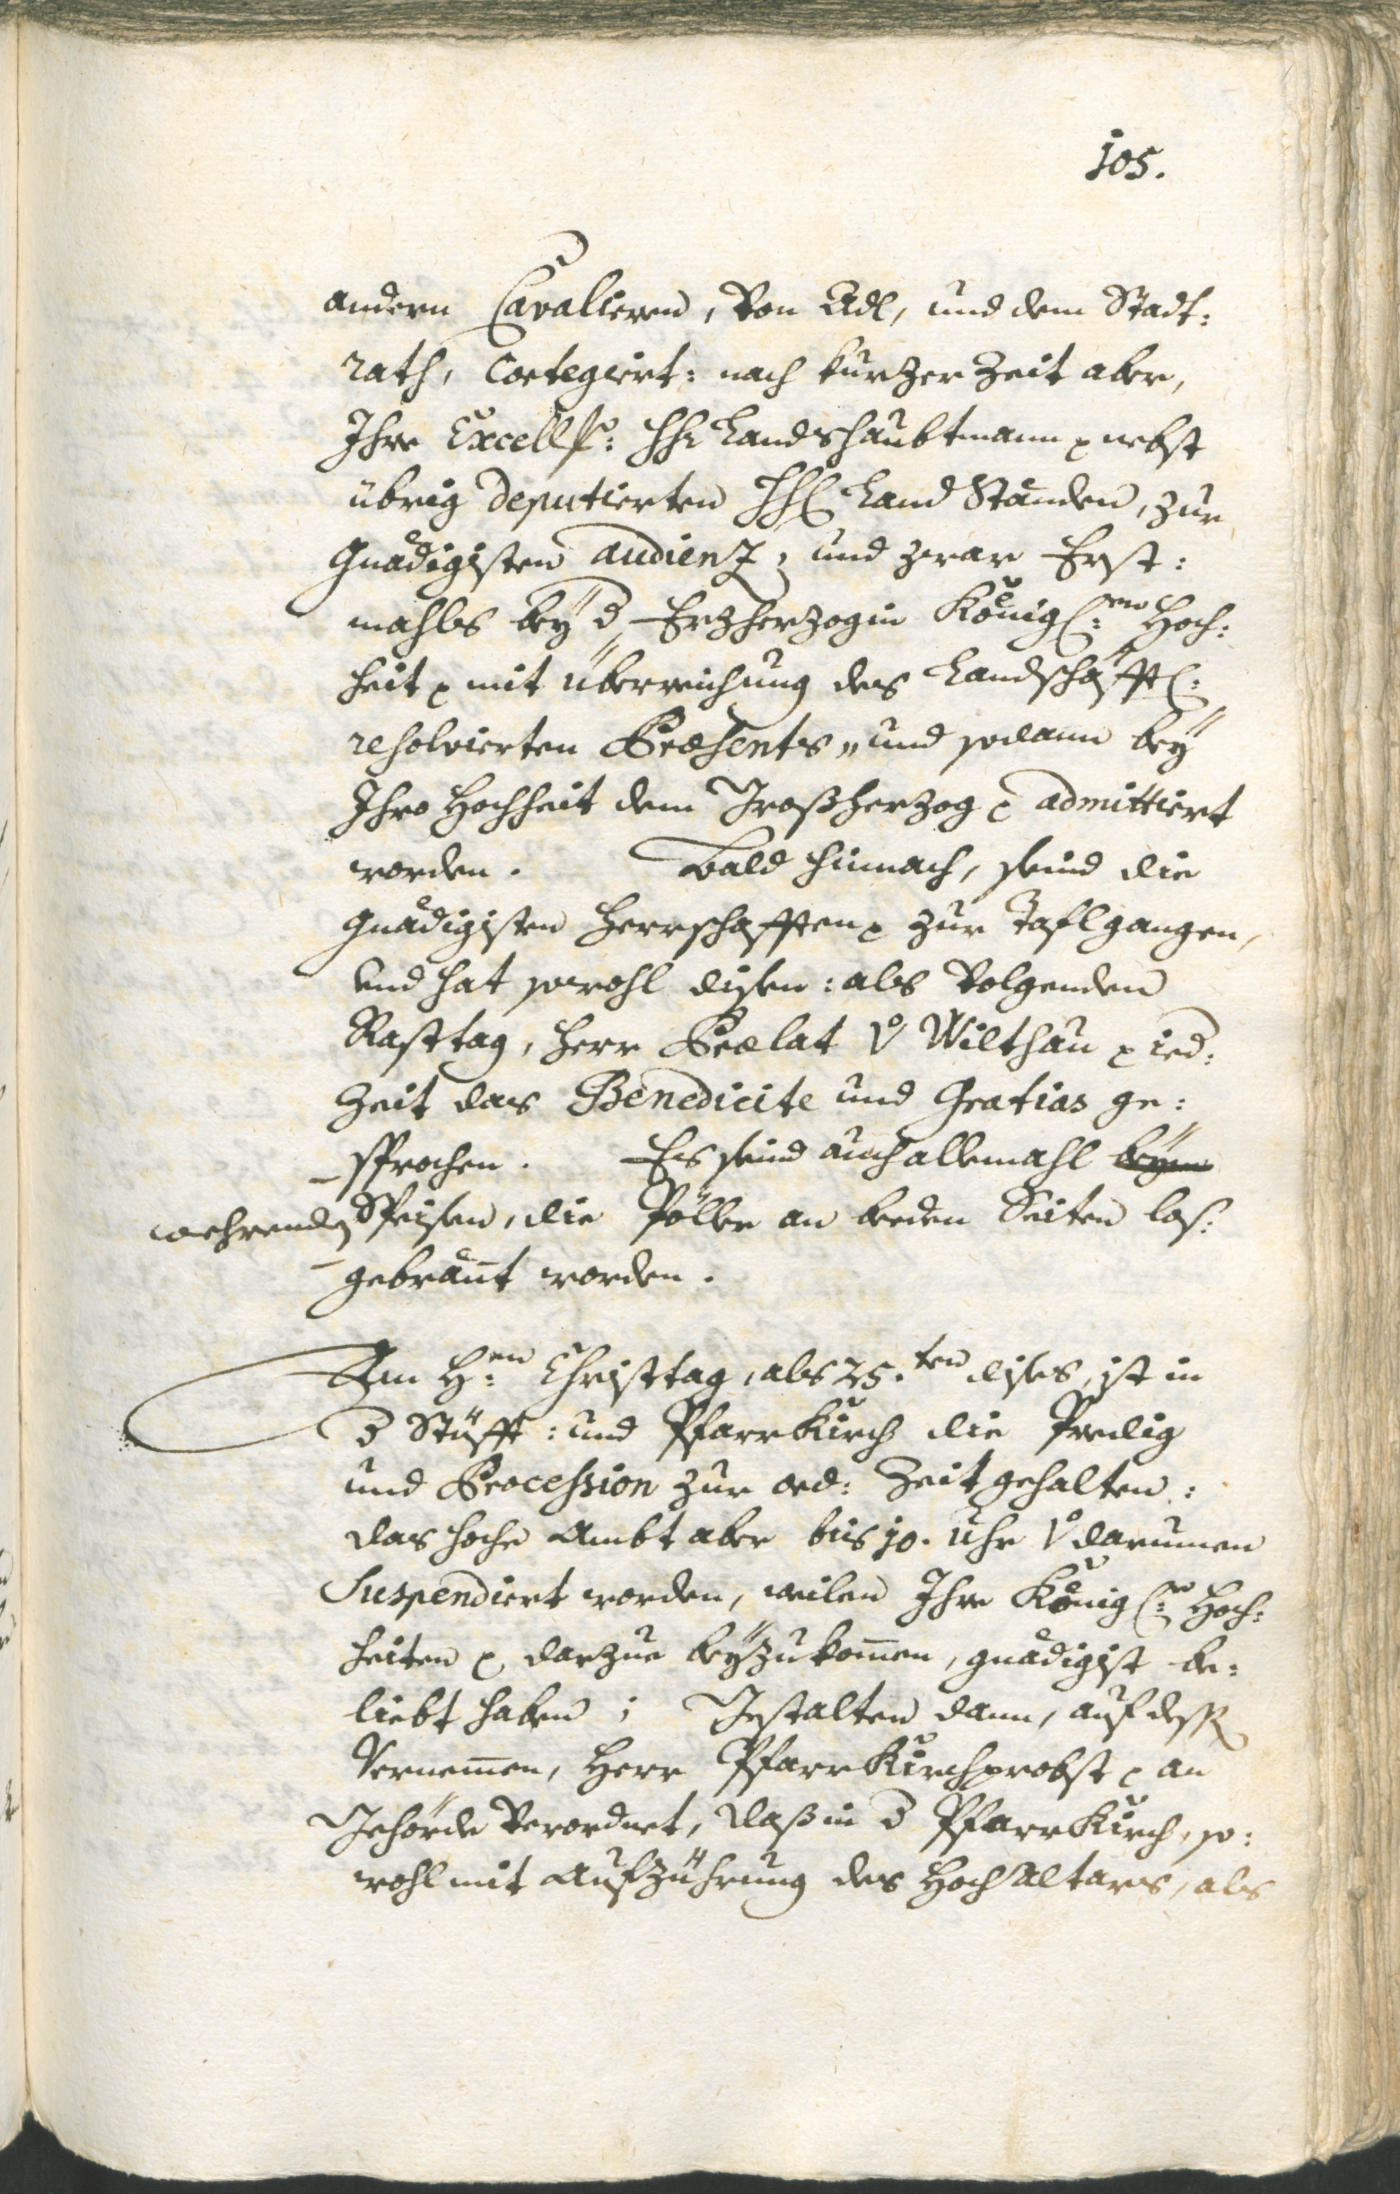 105.
andern Cavalieren, Von Adl, und dem Stadt:
rath, Cortegiert: nach kurzer Zeit aber,
Ihre Excell: HH Landshaubtmann p nebst
übrig deputierten HH Land Ständen, zur
Gnädigisten audienz; und zwar Erst:
mahls beÿ d Erzherzogin Königl: en Hoch:
heit p mit überreichung des Landschäfftl:
resolvierten Præsents, und sodann beÿ
Ihro Hochheit dem Großherzog p admittiert
worden. Bald hinnach, seind die
Gnädigisten Herrschafften p zur Tafl gangen,
und hat sowohl disen: als Volgenden
Rasttag, Herr Prælat v Wilthau p ied:
Zeit das Benedicite und Gratias ge:
sprochen. Es seind auch allemahl beÿm
wehrenden Speisen, die Pöller an beeden Seiten los:
gebrant worden.
Am H: en Christtag, als 25. ten dises, ist in
d Stüfft: und Pfarrkirch die Predig
und Procession zur ord: Zeit gehalten:
das hoche Ambt aber bis 10. Uhr v darumen
Suspendiert worden, weilen Ihre Königl: e Hoch:
heiten p darzue beÿzukomen, gnädigist be:
liebt haben; Gestalten dann, auf dessen
Vernemen, Herr Pfarrkirchprobst p an
Gehörde Verordnet, daß in d Pfarrkirch, so:
wohl mit Aufzührung des Hoch Altars, als